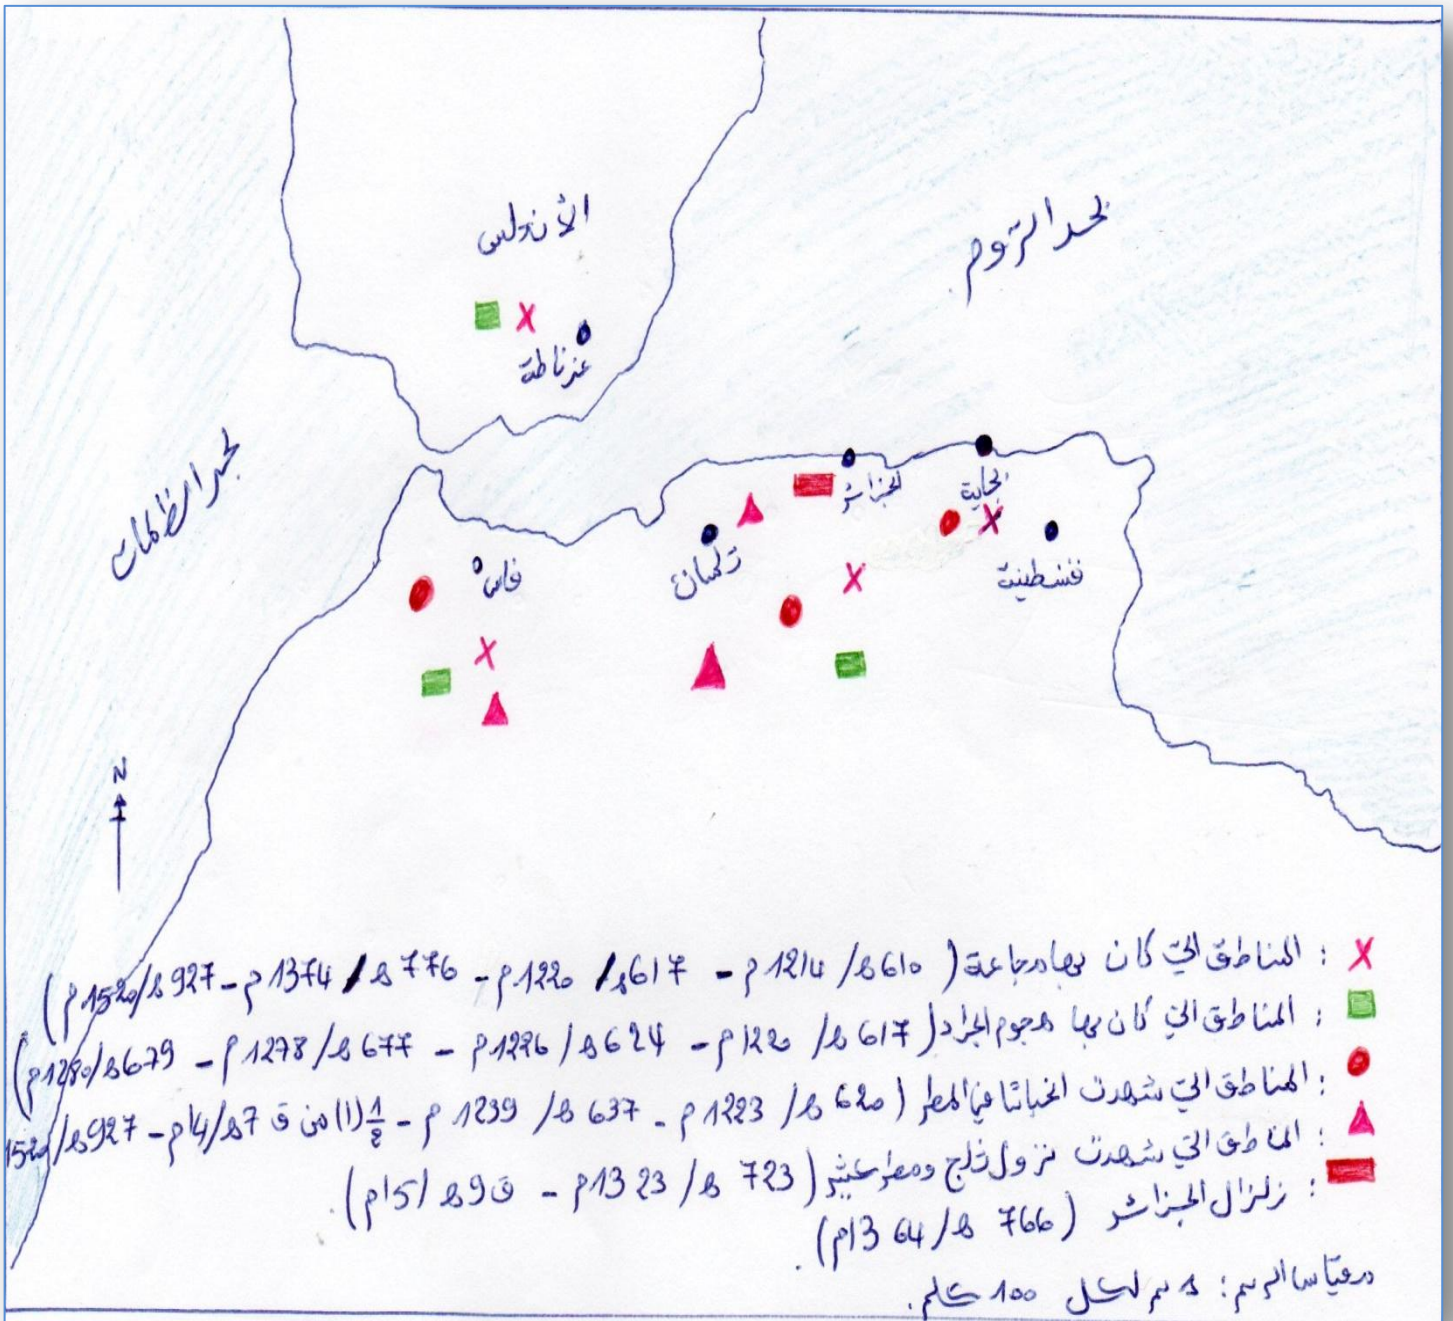 الأندلس
بحر الروم
غرناطة
بحر الظلمات
الجزائر
بجاية
تلمسان
قسنطينة
فاس
N
: المناطق التي كان بها مجاعة (610 ه/ 1214 م - 617 ه/ 1220 م - 776 ه/ 1374 م - 927 ه/ 1520 م)
: المناطق التي كان بها هجوم الجراد (617 ه/ 1220 م - 624 ه/ 1226 م - 677 ه/ 1278 م - 679 ه/ 1280 م)
: المناطق التي شهدت انحباسا في المطر (620 ه/ 1223 م - 637 ه/ 1239 م - 1/2 (1) من ق 7 ه/ 14 م - 927 ه/ 1520
: المناطق التي شهدت نزول ثلج ومطر غزير (723 ه/ 1323 م - ق 9 ه/ 15 م).
: زلزال الجزائر (766 ه/ 1364 م).
مقياس الرسم: 1 سم لكل 100 كلم.